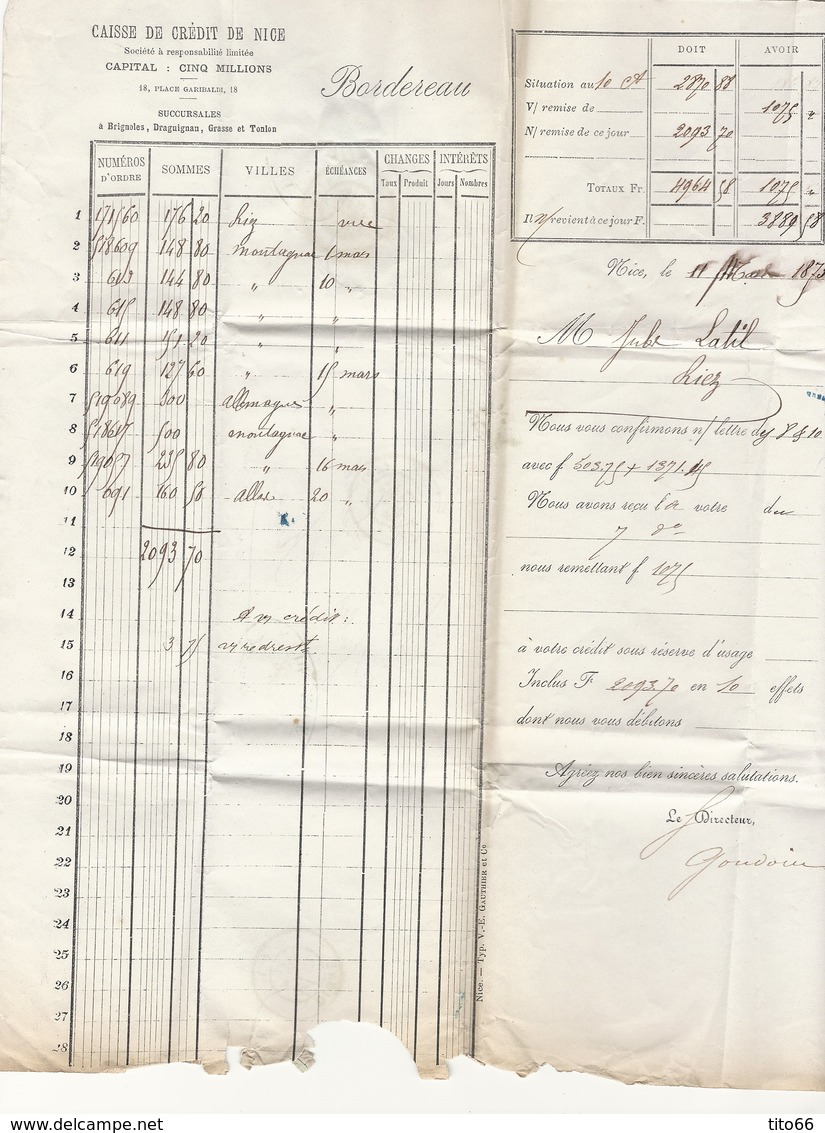 CAISSE DE CRÉDIT DE NICE
Société à responsabilité limitée
CAPITAL : CINQ MILLIONS
18, PLACE GARIBALDI, 18
SUCCURSALES
à Brignoles, Draguignan, Grasse et Toulon
Bordereau
NUMÉROS D'ORDRE SOMMES VILLES ÉCHÉANCES CHANGES INTÉRÊTS
Taux Produit Jours Nombres
1 171560 176 20 Riez vue
2 518609 148 80 Montagnac 1 mars
3 613 144 80 " 10 "
4 615 148 80 " "
5 611 151 20 " "
6 619 127 60 " 15 mars
7 519089 300 allemagne "
8 518617 500 montagnac "
9 519057 235 80 " 16 mars
10 691 160 50 allos 20 "
11
12 2093 70
13
14 A v/ crédit :
15 3 75 v/ redresst
16
17
18
19
20
21
22
23
24
25
26
27
28
Nice. — Typ. V.-E. GAUTHIER et Cº
DOIT AVOIR
Situation au 10 ct 2870 88
V/ remise de 1075 "
N/ remise de ce jour 2093 70
TOTAUX Fr. 4964 58 1075 "
Il revient à ce jour F. 3889 58
Nice, le 11 Mars 1875
M Jube Latil
Riez
Nous vous confirmons n/ lettre des 8 & 10
avec f 503.75 + 1371.15
Nous avons reçu la votre du
7 do
nous remettant f 1075
à votre crédit sous réserve d'usage
Inclus F 2093.70 en 10 effets
dont nous vous débitons
Agréez nos bien sincères salutations.
Le Directeur,
delcampe.net
tito66